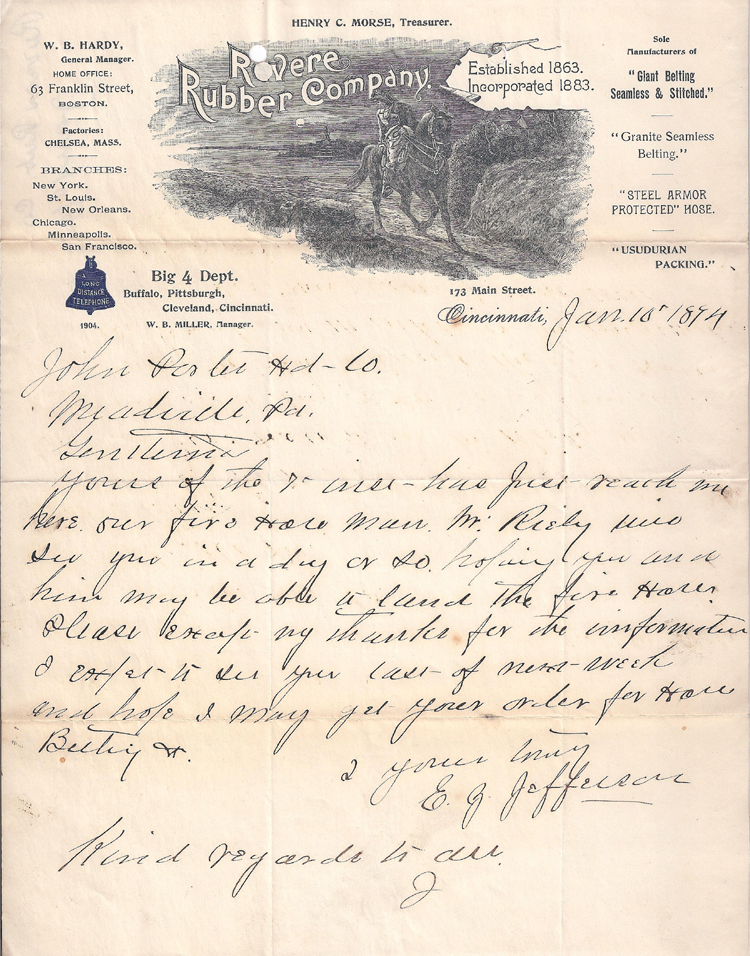 HENRY C. MORSE, Treasurer.
W. B. HARDY,
General Manager.
HOME OFFICE:
63 Franklin Street,
BOSTON.
Factories:
CHELSEA, MASS.
BRANCHES:
New York.
St. Louis.
New Orleans.
Chicago.
Minneapolis.
San Francisco.
LONG
DISTANCE
TELEPHONE
1904.
Revere
Rubber Company.
Established 1863.
Incorporated 1883.
Sole
Manufacturers of
"Giant Belting
Seamless & Stitched."
"Granite Seamless
Belting."
"STEEL ARMOR
PROTECTED" HOSE.
"USUDURIAN
PACKING."
Big 4 Dept.
Buffalo, Pittsburgh,
Cleveland, Cincinnati.
W. B. MILLER, Manager.
173 Main Street.
Cincinnati, Jan. 10 1894
John Porter Hd-Co.
Meadville, Pa.
Gentlemen
Yours of the 7 inst-has just reach me
here. our fire Hose man Mr. Riely will
see you in a day or so. hoping you and
him may be able to land the fire Hose.
Please except my thanks for the imformation
I expet to see you last of next week
and hope I may get your order for Hose
Belting &.
I yours truly
E. Jefferson
Kind regards to all.
J